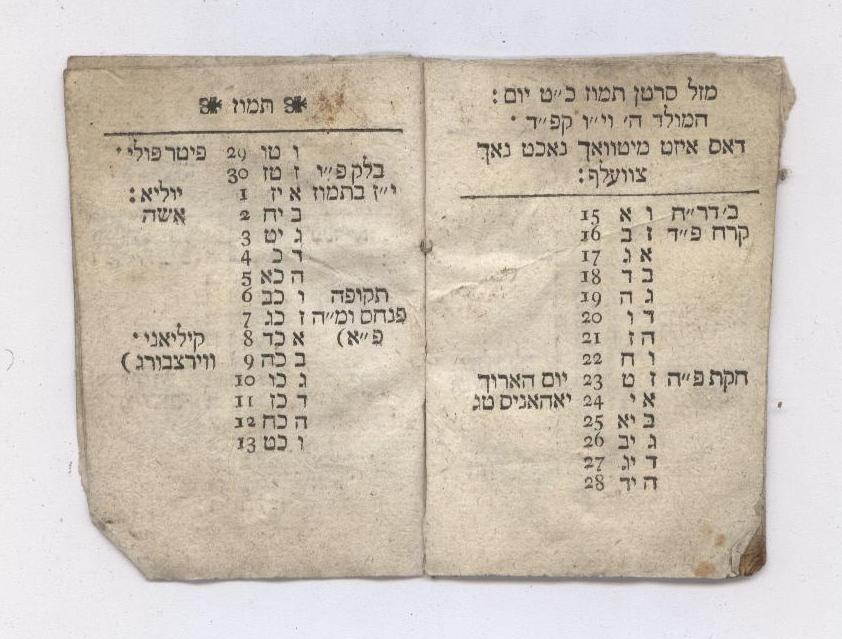 מזל סרטן תמוז כ״ט יום :
המולד ה׳ וי״ו קפ״ד ·
דאס איזט מיטוואך נאכט נאך
צוועלף :
ב׳ דר״ח ו א 15
קרח פ״ד ז ב 16
א ג 17
ב ד 18
ג ה 19
ד ו 20
ה ז 21
ו ח 22
חקת פ״ה ז ט 23 יום הארוך
א י 24 יאהאניס טג
ב יא 25
ג יב 26
ד יג 27
ה יד 28
תמוז
ו טו 29 פיטר פולי ·
בלק פ״ו ז טז 30
י״ז בתמוז א יז 1 יוליא :
ב יח 2 אשה
ג יט 3
ד כ 4
ה כא 5
תקופה ו כב 6
פנחס ומ״ה ז כג 7
פ״א) א כד 8 קיליאני ·
ב כה 9 ווירצבורג )
ג כו 10
ד כז 11
ה כח 12
ו כט 13